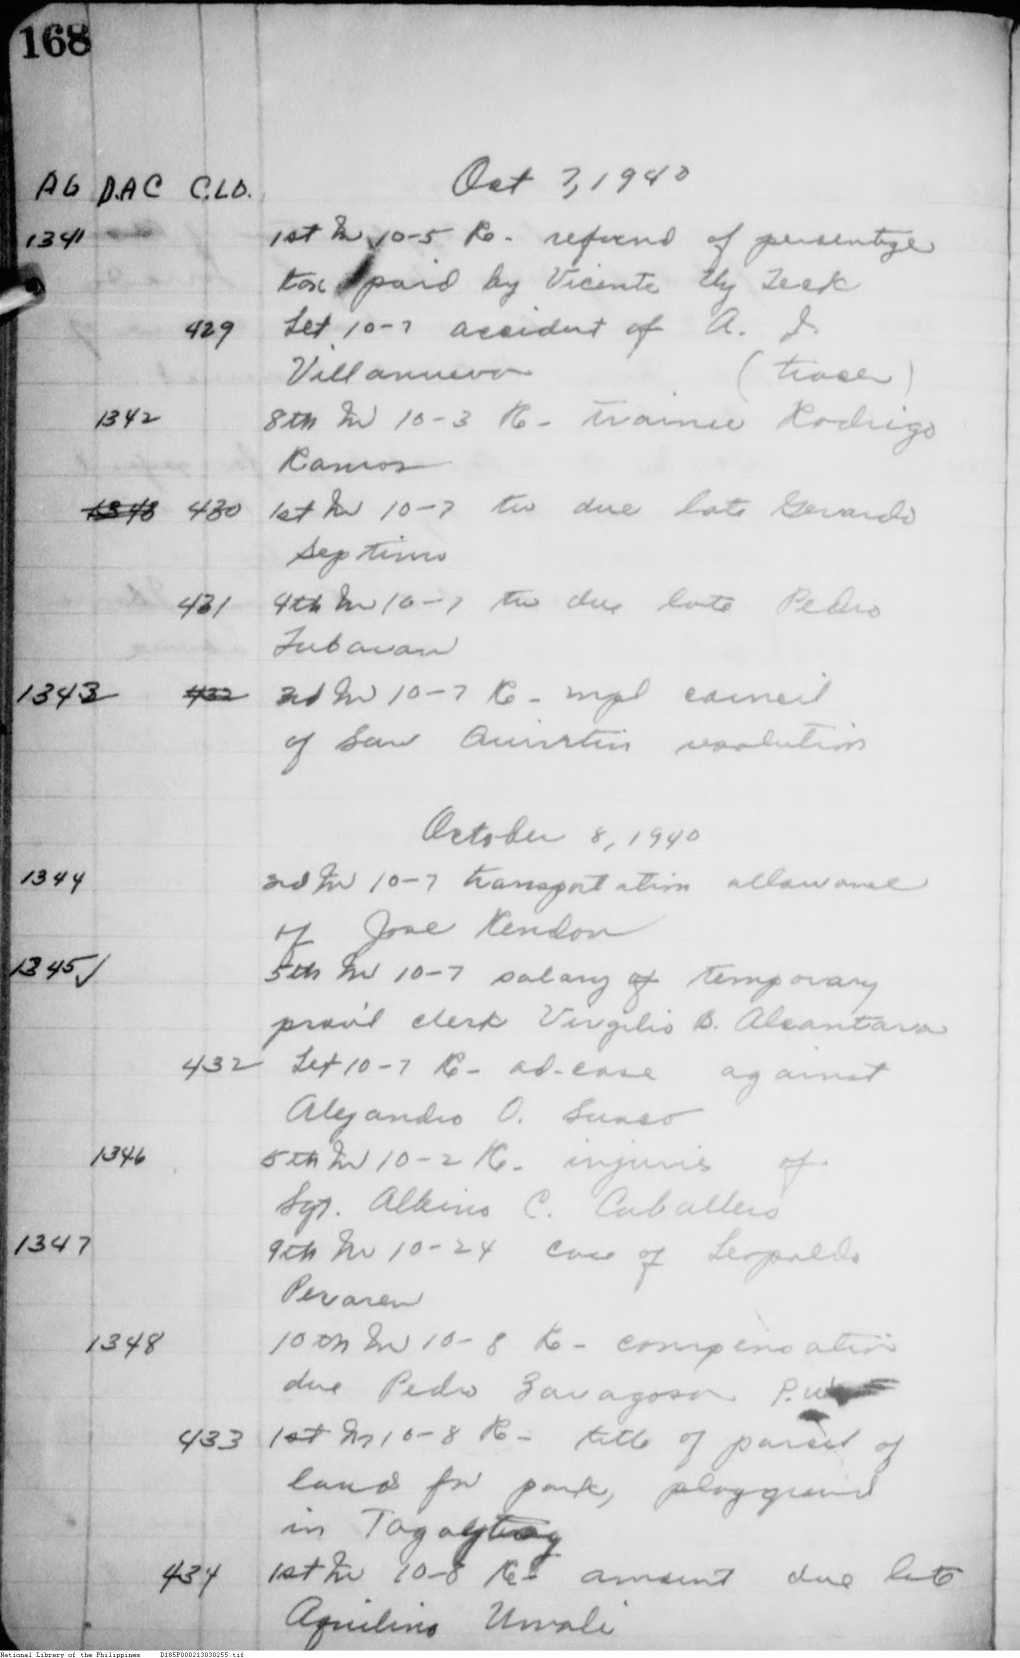 168
AG D.AC C.LD. Oct 7, 1940
1341 1st In 10-5 Re- refund of percentage
tax paid by Vicente Uy Teek
429 Let 10-7 accident of A. J.
Villanueva (tracer)
1342 8th In 10-3 Re- trainee Rodrigo
Ramos
1343 430 1st In 10-7 tw due late Gerardo
Septimo
431 4th In 10-7 tw due late Pedro
Tubavan
1343 432 3rd In 10-7 Re- mpl council
of San Quintin resolution
October 8, 1940
1344 3rd In 10-7 transportation allowance
of Jose Rendon
1345 ✓ 5th In 10-7 salary of temporary
provl clerk Virgilio B. Alcantara
432 Let 10-7 Re- ad-case against
Alejandro O.
1346 5th In 10-2 Re- injuries of
Sgt. Albino C. Caballero
1347 9th In 10-24 case of Leopoldo
Pevaren
1348 10th In 10-8 Re- compensation
due Pedro Zaragosa P.W.
433 1st In 10-8 Re- title of parcel of
land for park, playground
in Tagaytay
434 1st In 10-8 Re- amount due late
Aquilino Umali
National Library of the Philippines D185P000213030255.tif